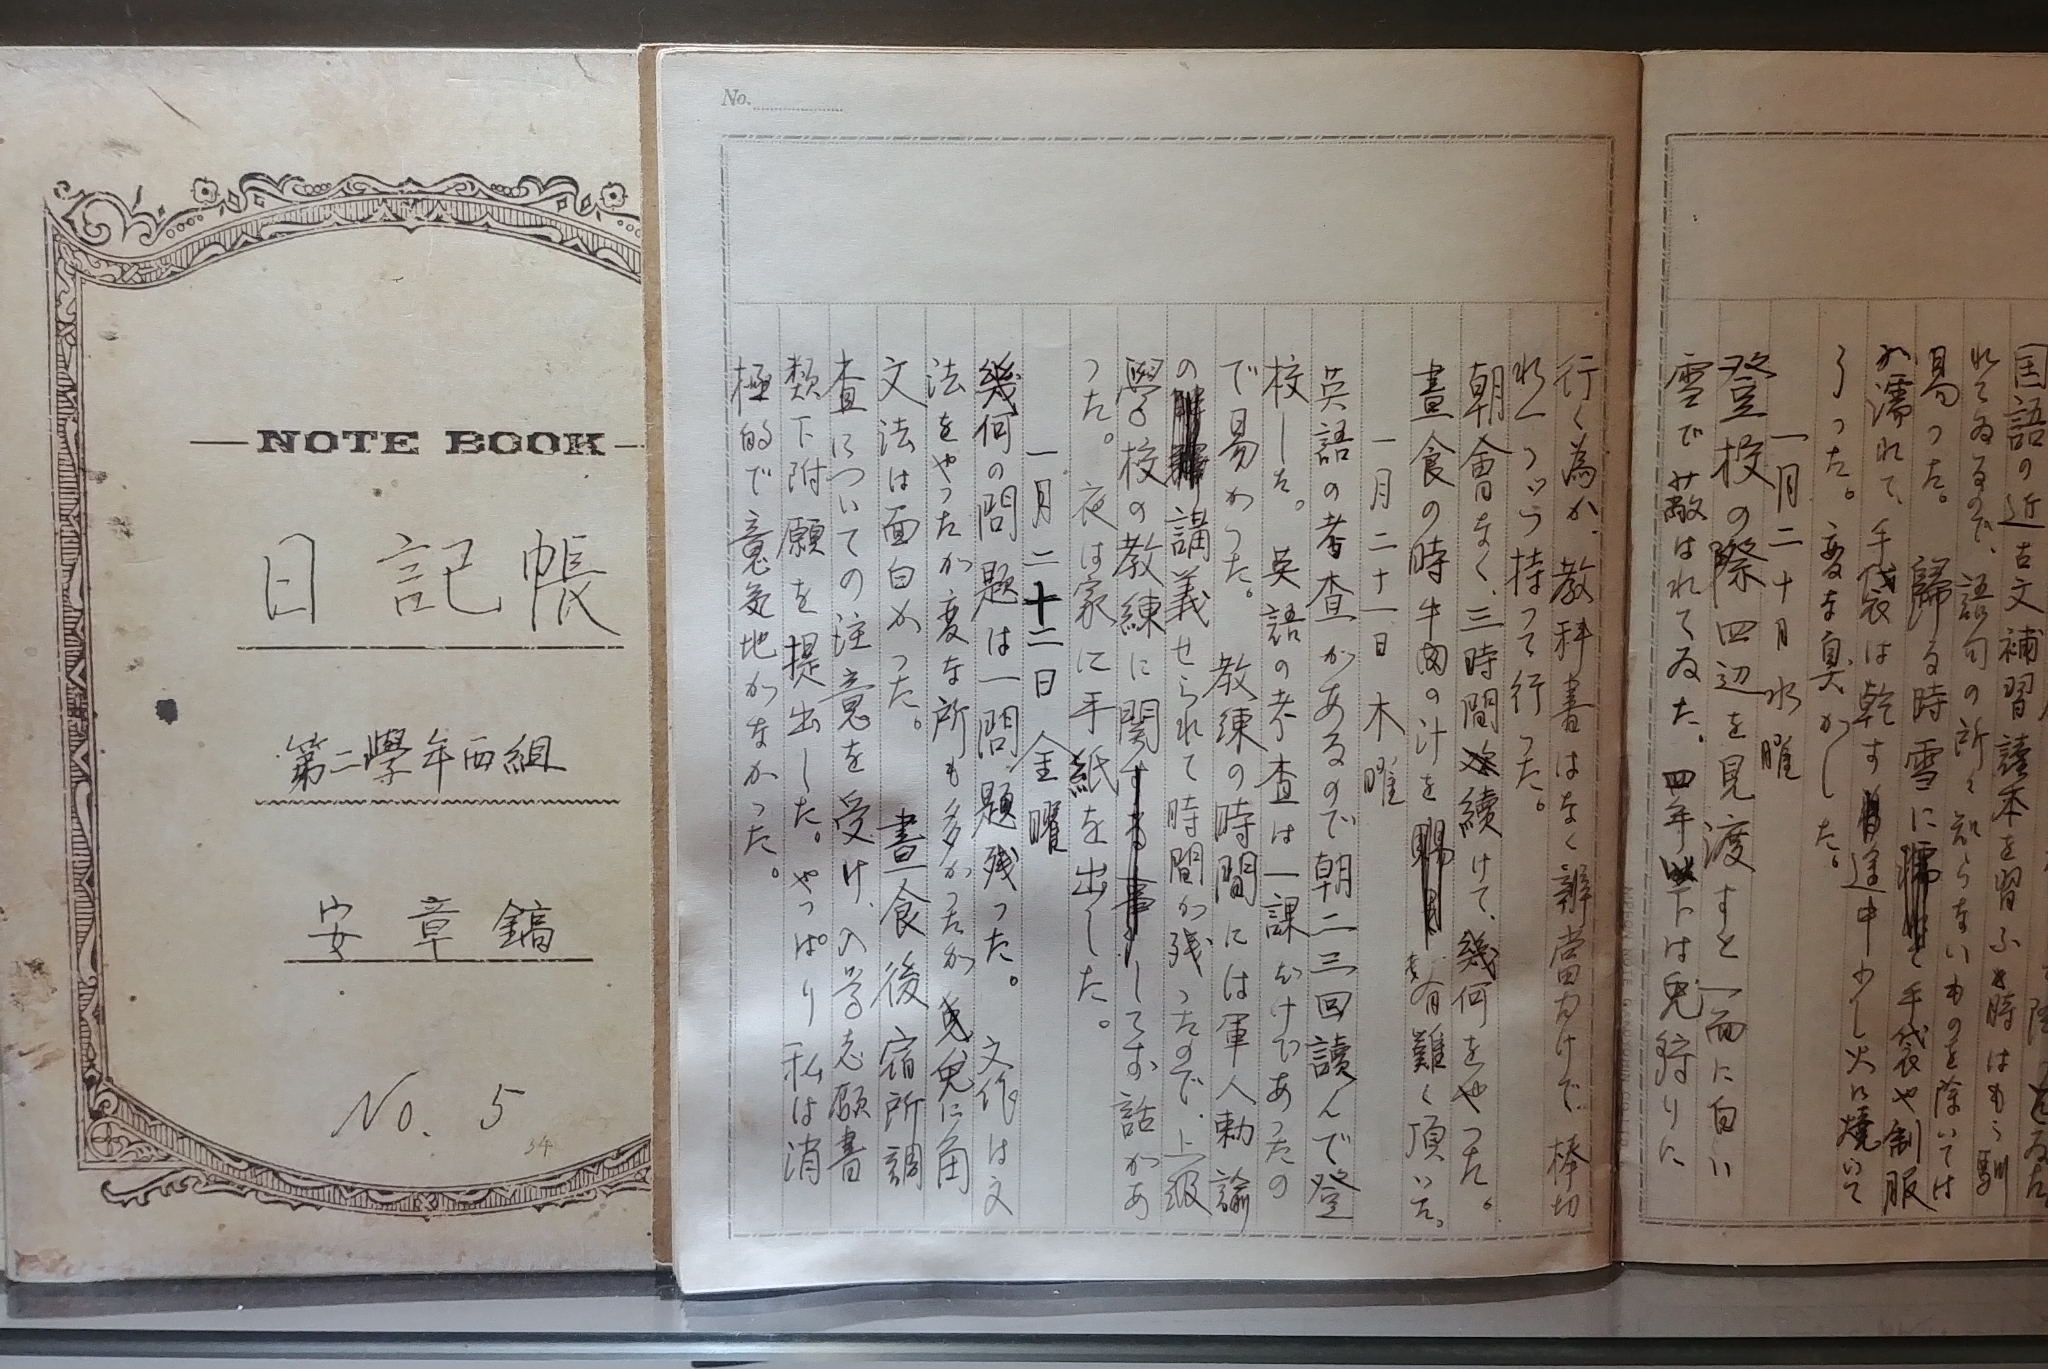 NOTE BOOK
日記帳
第二學年西組
安章鎬
No. 5
34
No.
国語の近古文補習讀本を習ふ時はもう馴
れてゐるので、語句の所々知らないものを除いては
易つた。 歸る時雪に 手袋や制服
が濡れて、手袋は乾す 途中少し火に燒いて
了つた。変な臭がした。
一月二十日 水曜
登校の際四辺を見渡すと一面に白い
雪で蔽はれてゐた。四年以下は兎狩りに
行く為か、教科書はなく辨當だけで棒切
れ一つづつ持つて行つた。
朝會なく、三時間続けて、幾何をやつた。
晝食の時牛肉の汁を 有難く頂いた。
一月二十一日 木曜
英語の考査があるので朝二三回讀んで登
校した。 英語の考査は一課だけであつたの
で易かつた。 教練の時間には軍人勅諭
の 講義せられて時間が残つたので、上級
學校の教練に関 してお話があ
つた。夜は家に手紙を出した。
一月二十二日 金曜
幾何の問題は一問題残つた。 文作は文
法をやつたが変な所も多かつたが 兎に角
文法は面白かつた。 晝食後宿所調
査についての注意を受け、入学志願書
類下附願を提出した。やつぱり私は消
極的で意気地がなかつた。